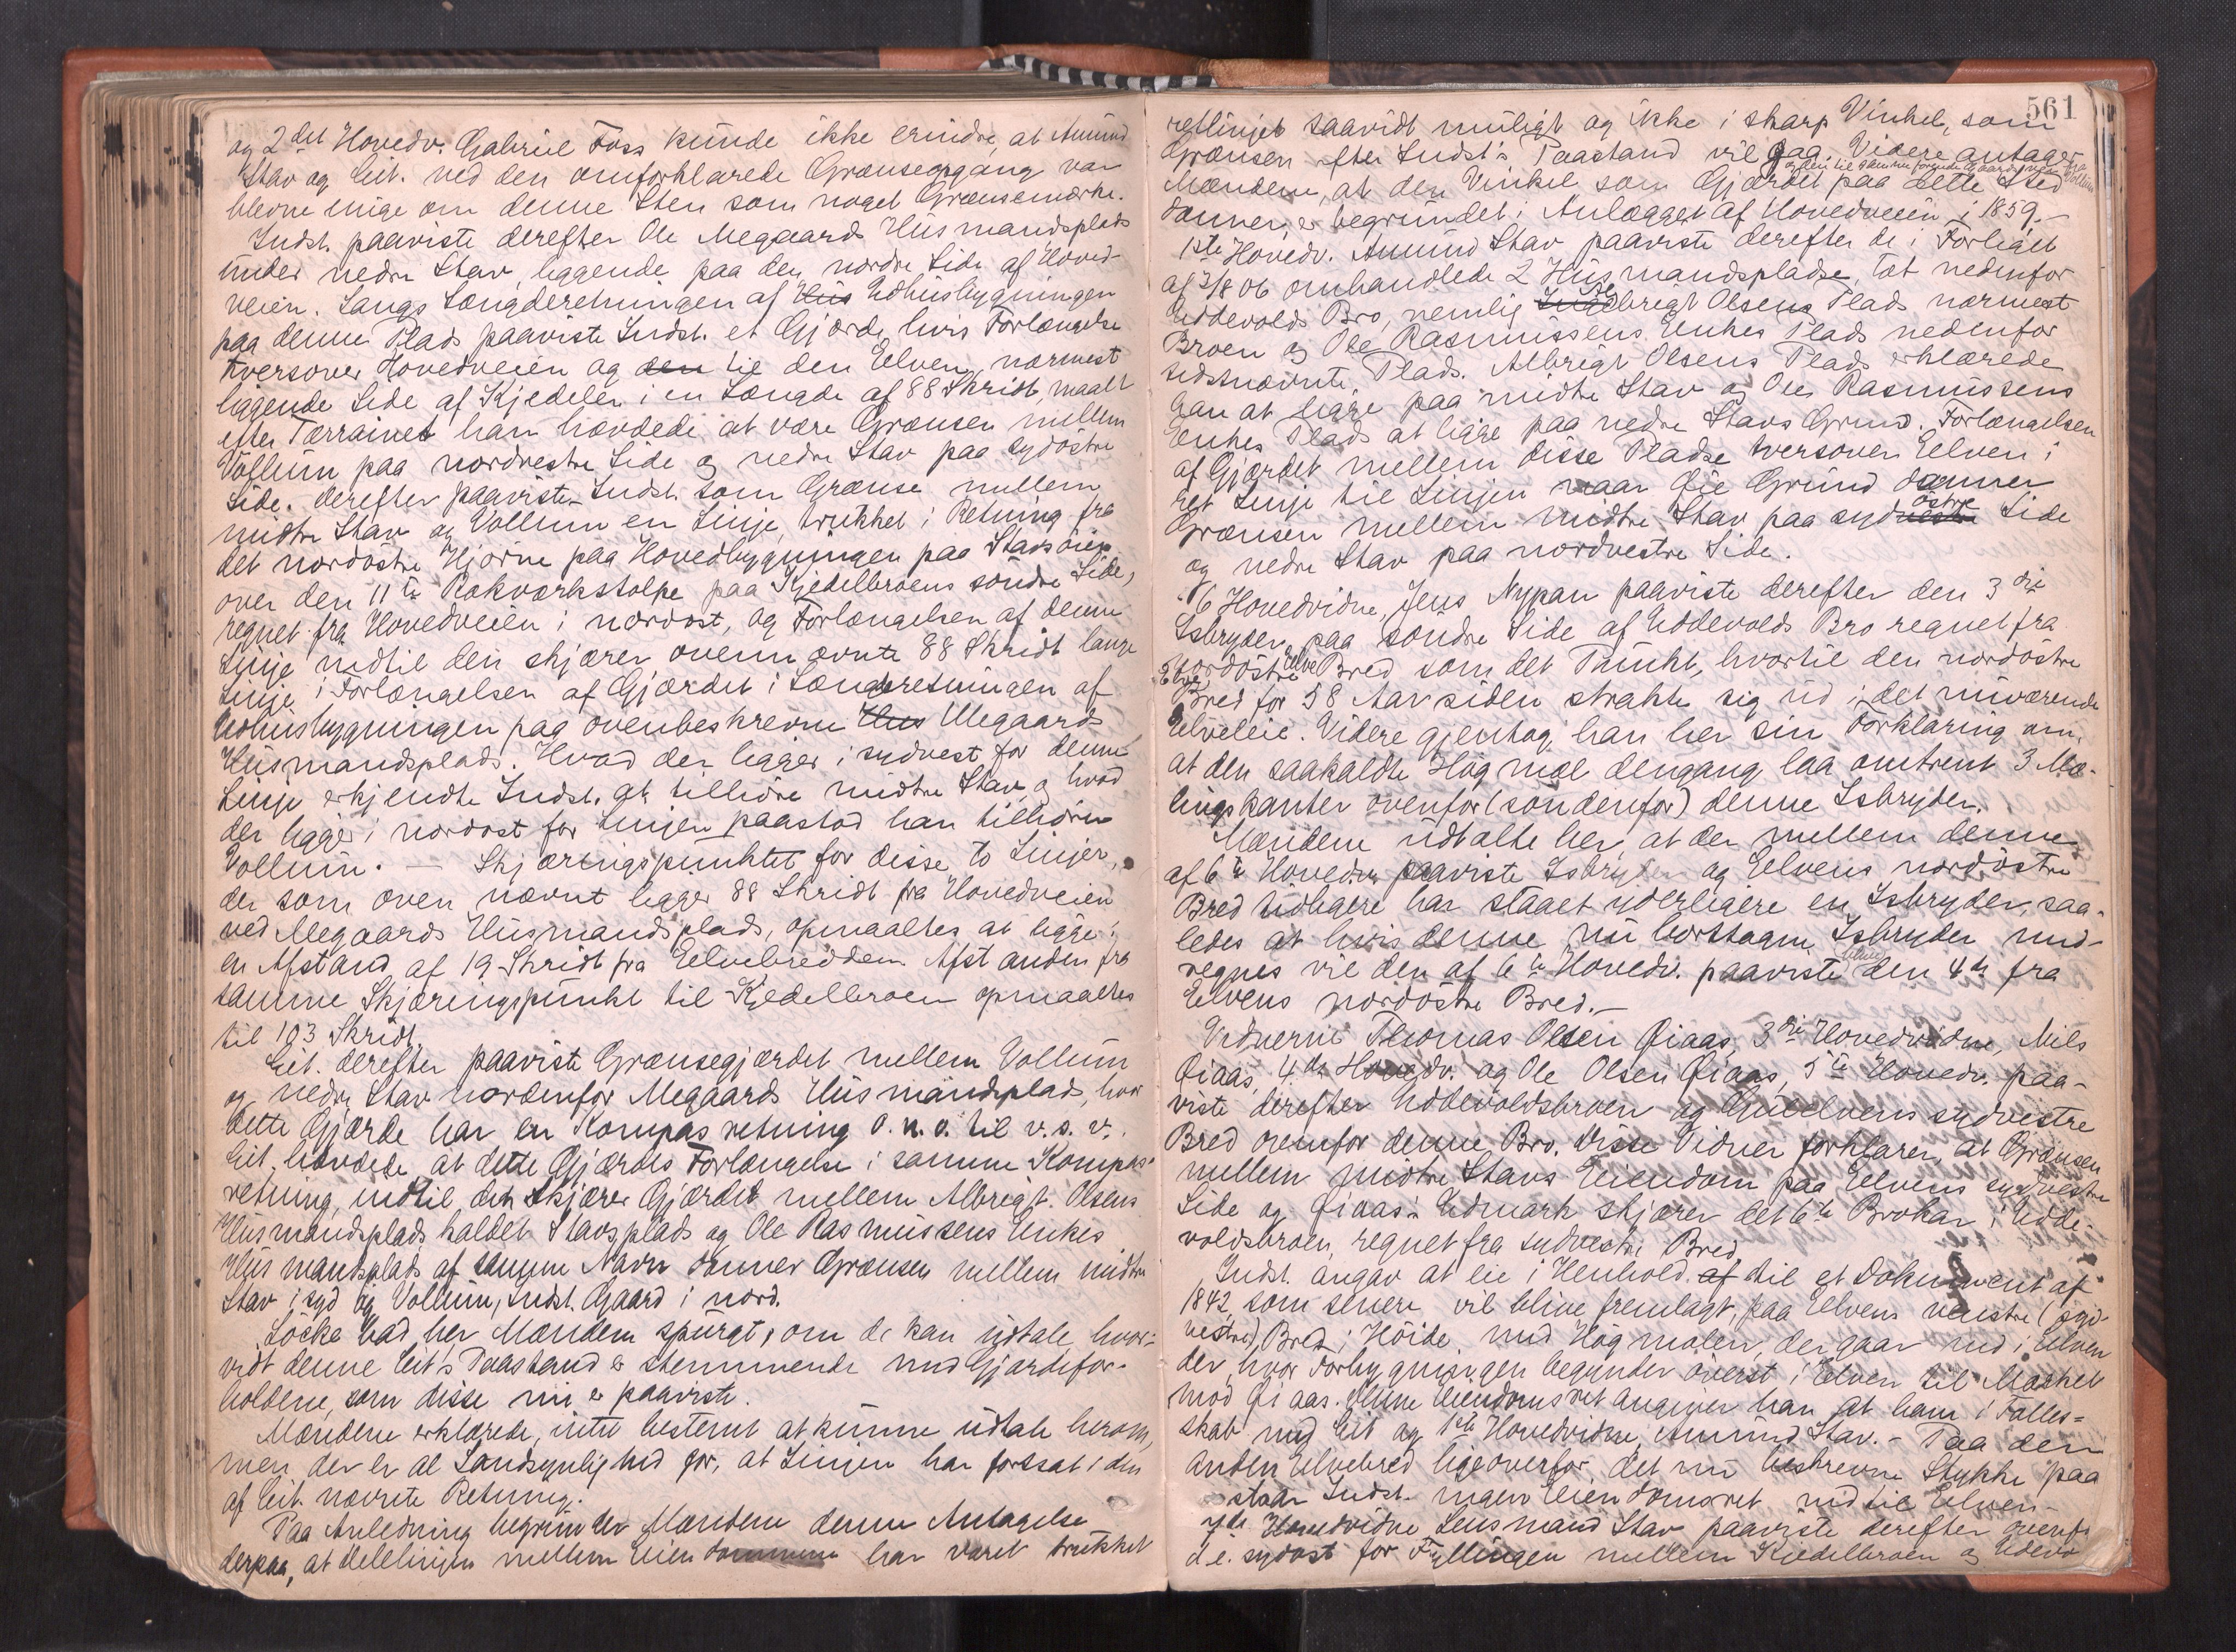 og 2det Hovedv. Gabriel Foss kunde ikke erindre, at Amund
Stav og Cit. ved den omforklarede Grænseopgang var
blevne enige om denne Sten som noget Grænsemærke.
Indst. paaviste derefter Ole Megaards Husmandsplads
under nedre Stav, liggende paa den nordre Side af Hoved-
veien. Langs Længderetningen af Hus Udhusbygningen
paa denne Plads paaviste Indst. et Gjærde, hvis Forlængelse
tversover Hovedveien og den til den Elven nærmest
liggende Side af Kjedelen i en Længde af 88 Skridt, maalt
efter Tærrainet han hævdede at være Grænsen mellem
Vollum paa nordvestre Side og nedre Stav paa sydöstre
Side. Derefter paaviste Indst. som Grænse mellem
midtre Stav og Vollum en Linje, trukket i Retning fra
det nordöstre Hjörne paa Hovedbygningen paa Stavsöien
over den 11te Rækværkstolpe paa Kjedelbroens söndre Side,
regnet fra Hovedveien i nordost, og Forlængelsen af denne
Linje indtil den skjærer ovennævnte 88 Skridt lange
Linje i Forlængelsen af Gjærdet i Længderetningen af
Udhusbygningen paa ovenbeskrevne Hus Megaards
Husmandsplads. Hvad der ligger i sydvest for denne
Linje erkjendte Indst. at tilhöre midtre Stav og hvad
der ligger i nordost for Linjen paastod han tilhörer
Vollum. — Skjæringspunktet for disse to Linjer,
der som oven nævnt ligger 88 Skridt fra Hovedveien
ved Megaards Husmandsplads, opmaaltes at ligge i
en Afstand af 19 Skridt fra Elvebredden. Afstanden fra
samme Skjæringspunkt til Kjedelbroen opmaaltes
til 103 Skridt.
Cit. derefter paaviste Grænsegjærdet mellem Vollum
og nedre Stav nordenfor Megaards Husmandsplads, hvor
dette Gjærde har en Kompasretning o. n. o. til v. s. v.
Cit. hævdede at dette Gjærdes Forlængelse i samme Kompas-
retning, indtil den skjærer Gjærdet mellem Albrigt Olsens
Husmandsplads kaldet Stavsplads og Ole Rasmussens Enkes
Husmandsplads af samme Navn danner Grænsen mellem midtre
Stav i syd og Vollum, Indst. Gaard i nord.
Löcke bad her Mændene spurgt, om de kan udtale, hvor-
vidt denne Cit's Paastand er stemmende med Gjærdefor-
holdene, som disse nu er paaviste.
Mændene erklærede, intet bestemt at kunne udtale herom,
men der er al Sandsynlighed for, at Linjen har fortsat i den
af Cit. nævnte Retning.
Paa Anledning begrunder Mændene denne Antagelse
derpaa, at delelinjen mellem Eiendommene har været trukket
561
retlinjet saavidt muligt og ikke i skarp Vinkel, som
Grænsen efter Indst's Paastand vil gaa. Videre antager
og den til samme förende Gaardsvei fra Vollum
Mændene, at den Vinkel som Gjærdet paa dette Sted
danner, er begrundet i Anlægget af Hovedveien i 1859.—
1ste Hovedv. Amund Stav paaviste derefter de i Forliget
af 3/8 06 omhandlede 2 Husmandspladse, tæt nedenfor
Uddevolds Bro, nemlig Albrigt Olsens Plads nærmest
Broen og Ole Rasmussens Enkes Plads nedenfor
sidstnævnte Plads. Albrigt Olsens Plads erklærede
han at ligge paa midtre Stav og Ole Rasmussens
Enkes Plads at ligge paa nedre Stavs Grund. Forlængelsen
af Gjærdet mellem disse Pladse tversover Elven i
ret Linje til Linjen naar Öie Grund danner
Grænsen mellem midtre Stav paa sydvestre östre Side
og nedre Stav paa nordvestre Side.
6 Hovedvidne, Jens Nypan paaviste derefter den 3die
Isbryder paa söndre Side af Uddevolds Bro regnet fra
nordöstre Elve Bred som det Punkt, hvortil den nordöstre
Elve Bred for 58 Aar siden strakte sig ud i det nuværende
Elveleie. Videre gjentog han her sin Forklaring om,
at den saakaldte Högmæl dengang laa omtrent 3 Mæ-
lingskanter ovenfor (söndenfor) denne Isbryder.
Mændene udtalte her, at der mellem denne
af 6te Hovedv. paaviste Isbryder og Elvens nordöstre
Bred tidligere har staaet yderligere en Isbryder, saa-
ledes at hvis denne nu borttagne Isbryder med-
regnes vil den af 6te Hovedv. paaviste blive den 4de fra
Elvens nordöstre Bred.—
Vidnerne Thomas Olsen Qiaas, 3die Hovedvidne, Nils
Qiaas, 4de Hovedv. og Ole Olsen Qiaas, 5te Hovedv. paa-
viste derefter Uddevoldsbroen og Gulelvens sydvestre
Bred ovenfor denne Bro. Disse Vidner forklarer, at Grænsen
mellem midtre Stavs Eiendom paa Elvens sydvestre
Side og Qiaas' Udmark skjærer det 6te Brokar i Udde-
voldsbroen, regnet fra sydvestre Bred.
Indst. angav at eie i Henhold af til et Dokument af
1842, som senere vil blive fremlagt, paa Elvens venstre (syd-
vestre) Bred i Höide med Högmælen, der gaar ned i Elven
der, hvor Forbygningen begynder överst i Elven til Mærket
mod Qiaas. Denne Eiendomsret angiver han at have i Fælles-
skab med Cit og 1ste Hovedvidne, Amund Stav. — Paa den
anden Elvebred ligeoverfor det nu beskrevne Stykke paa
staar Indst. ingen Eiendomsret ned til Elven.—
7de Hovedvidne Lensmand Stav paaviste derefter ovenfor
d.e. sydöst for Fyllingen mellem Kjedelbroen og Udevo